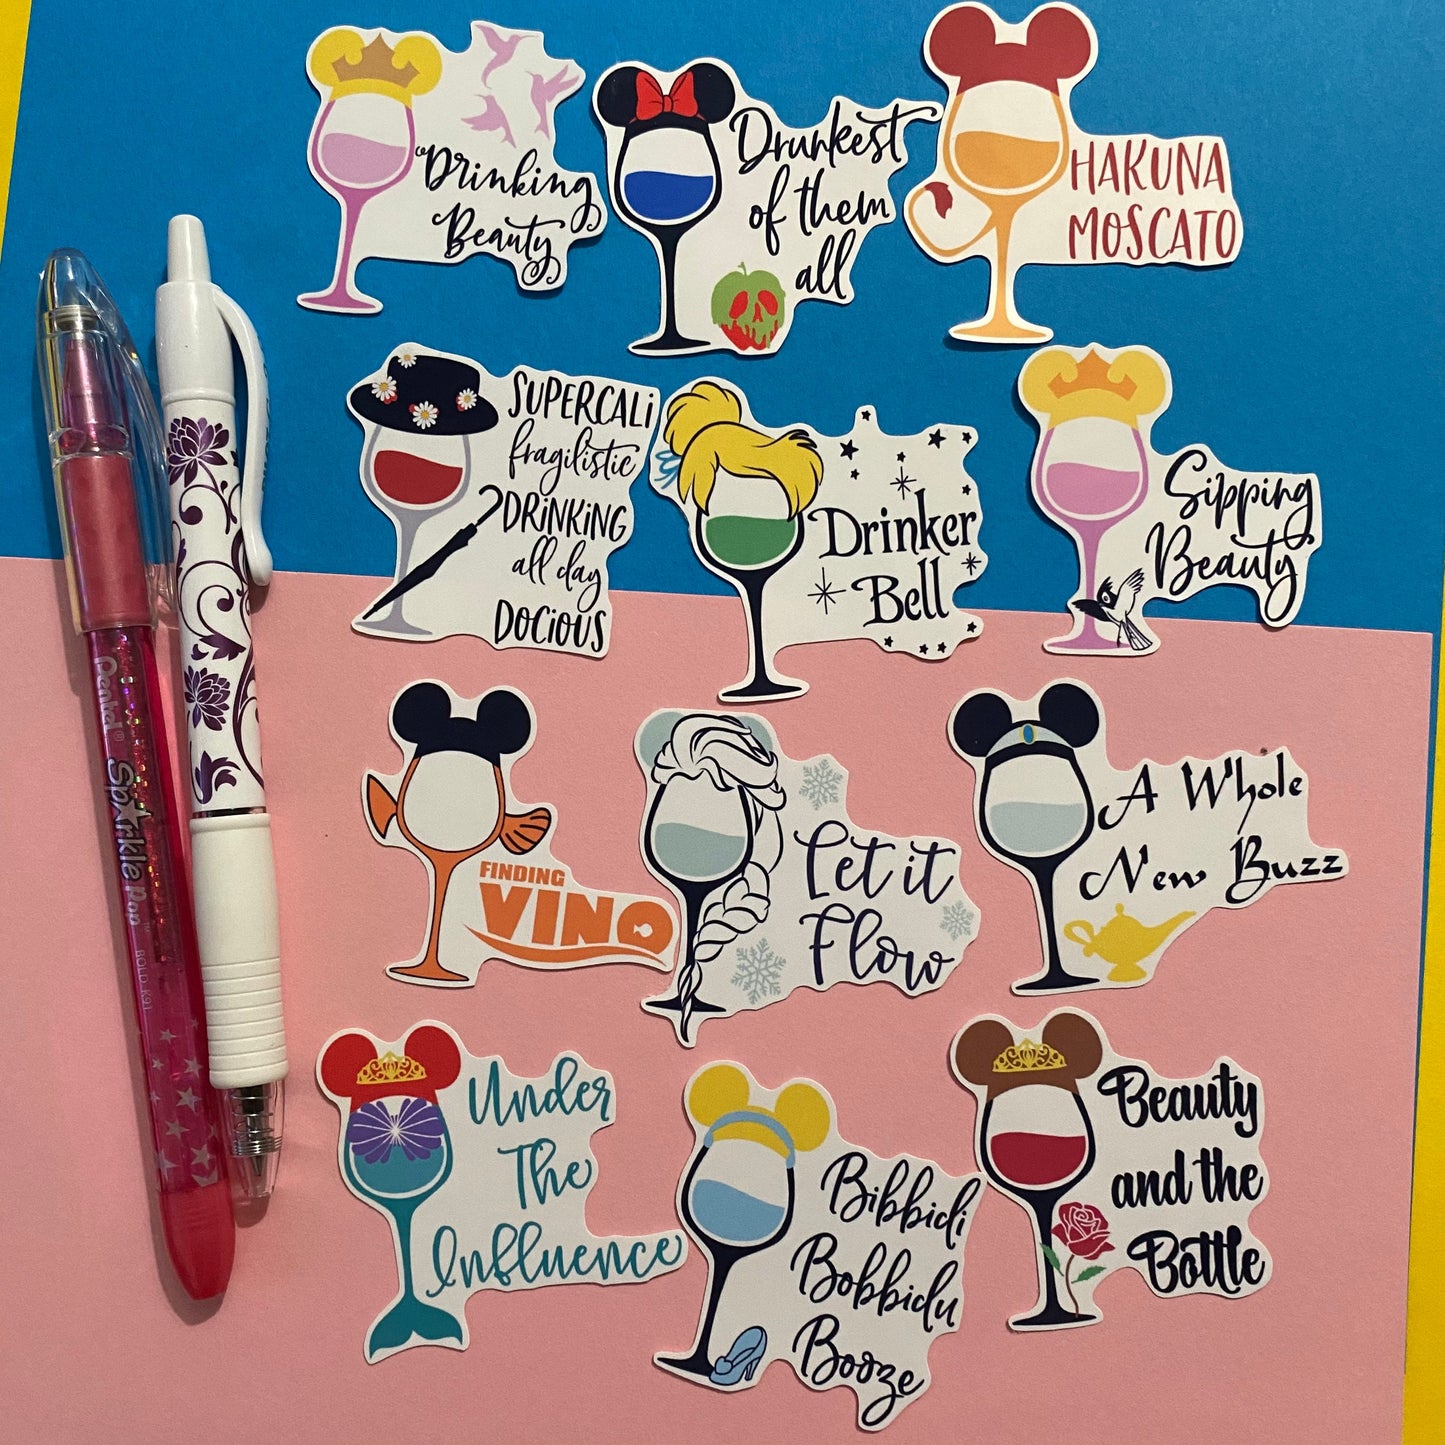 Drinking
Beauty
Drunkest
of them
all
HAKUNA
MOSCATO
SUPERCALI
fragilistic
DRiNKiNG
all day
DOCiOUS
Drinker
Bell
Sipping
Beauty
FINDING
VINO
Let it
Flow
A Whole
New Buzz
Under
The
Influence
Bibbidi
Bobbidu
Booze
Beauty
and the
Bottle
Pentel® Sparkle Pop™ BOLD K91